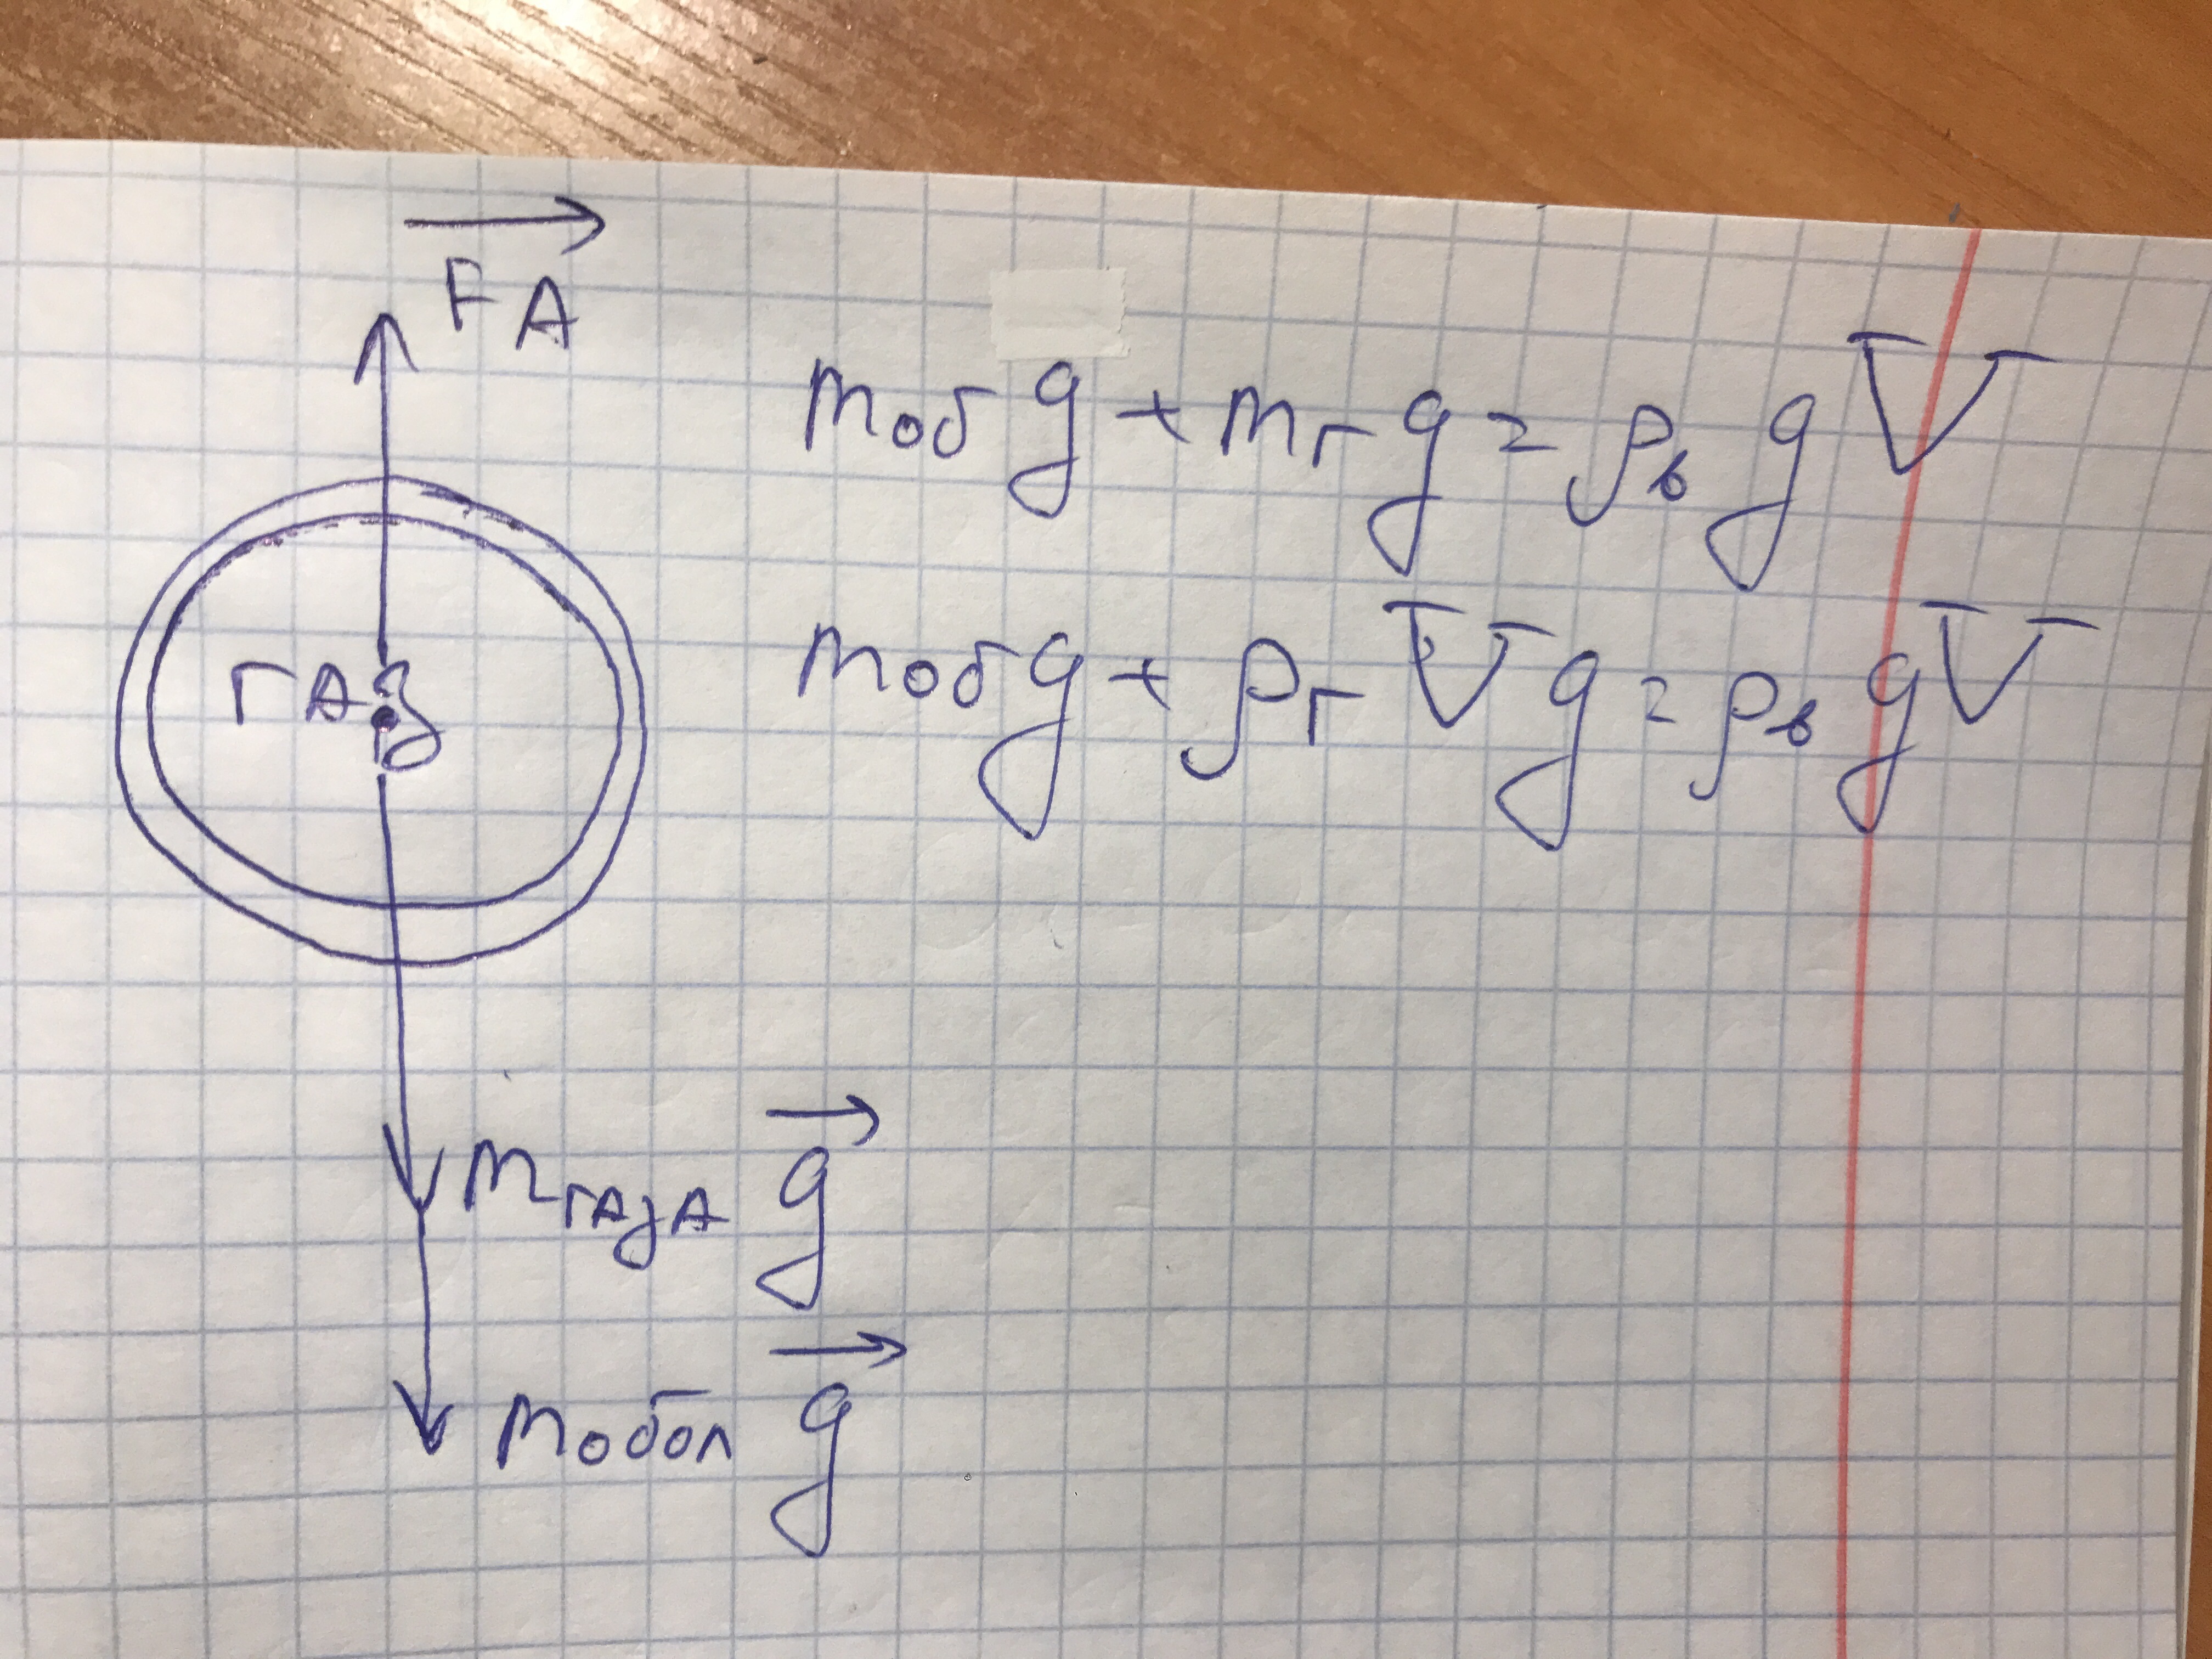 F⃗A
mоб g + mг g = ρв g V
mоб g + ρг V g = ρв g V
газ
mгаза g⃗
mобол g⃗